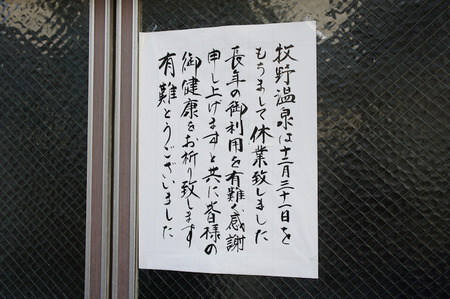 牧野温泉は十二月三十一日を
もちまして休業致しました
長年の御利用を有難く感謝
申し上げますと共に皆様の
御健康をお祈り致します
有難とうございました